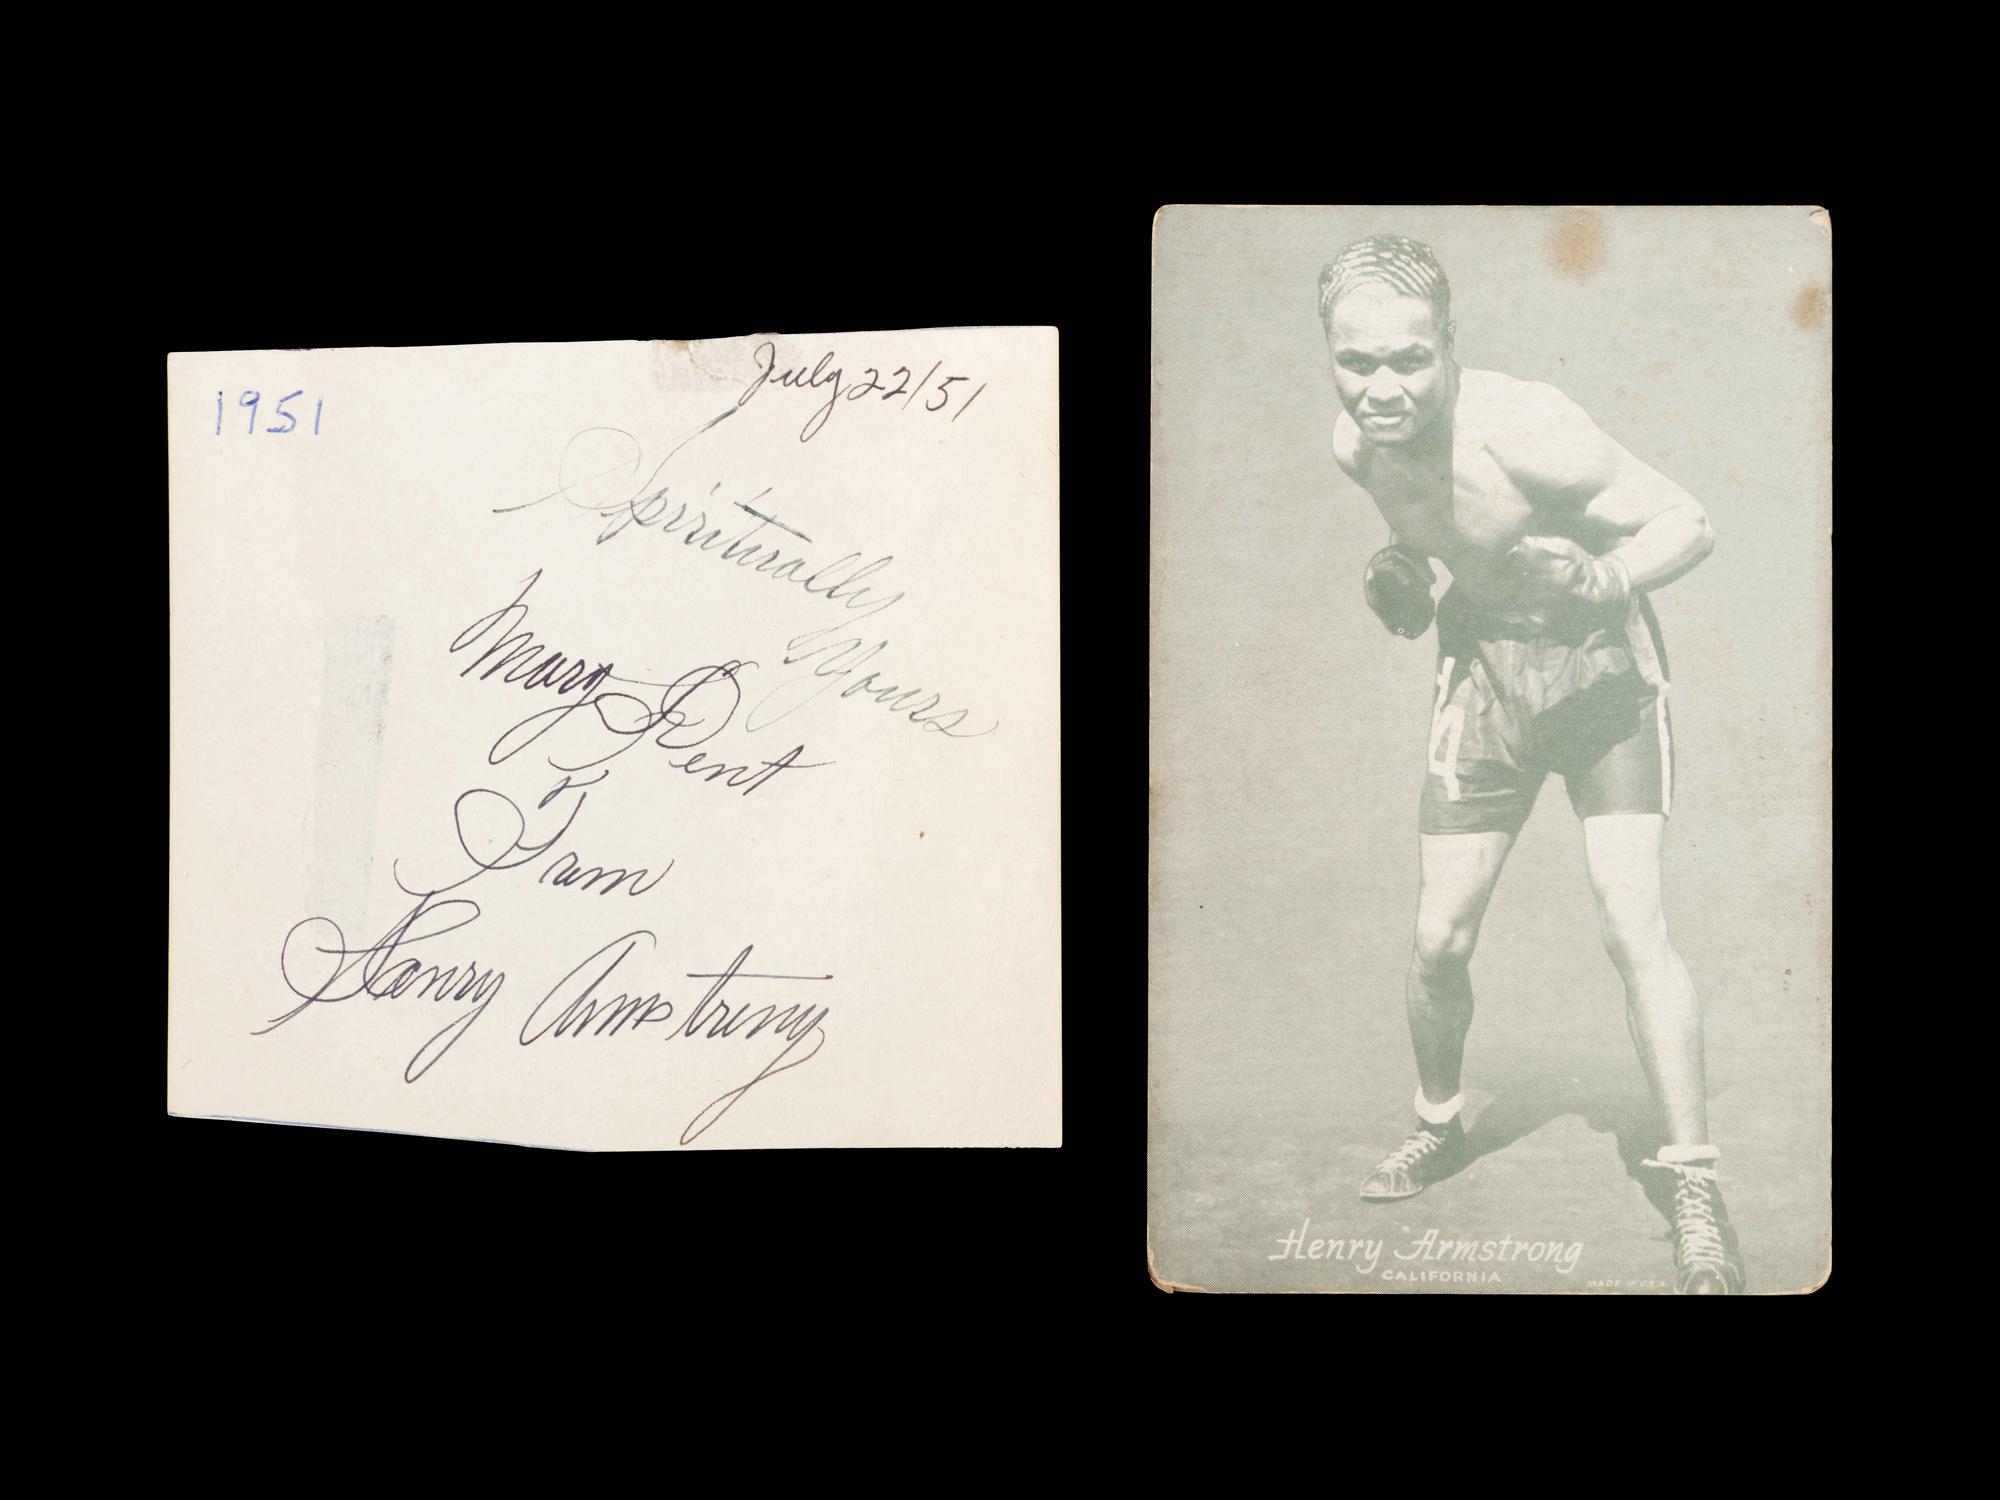 1951
July 22/51
Spiritually
Yours
Mary Dent
&
Fam
Henry Armstrong
Henry Armstrong
CALIFORNIA
MADE IN U.S.A.